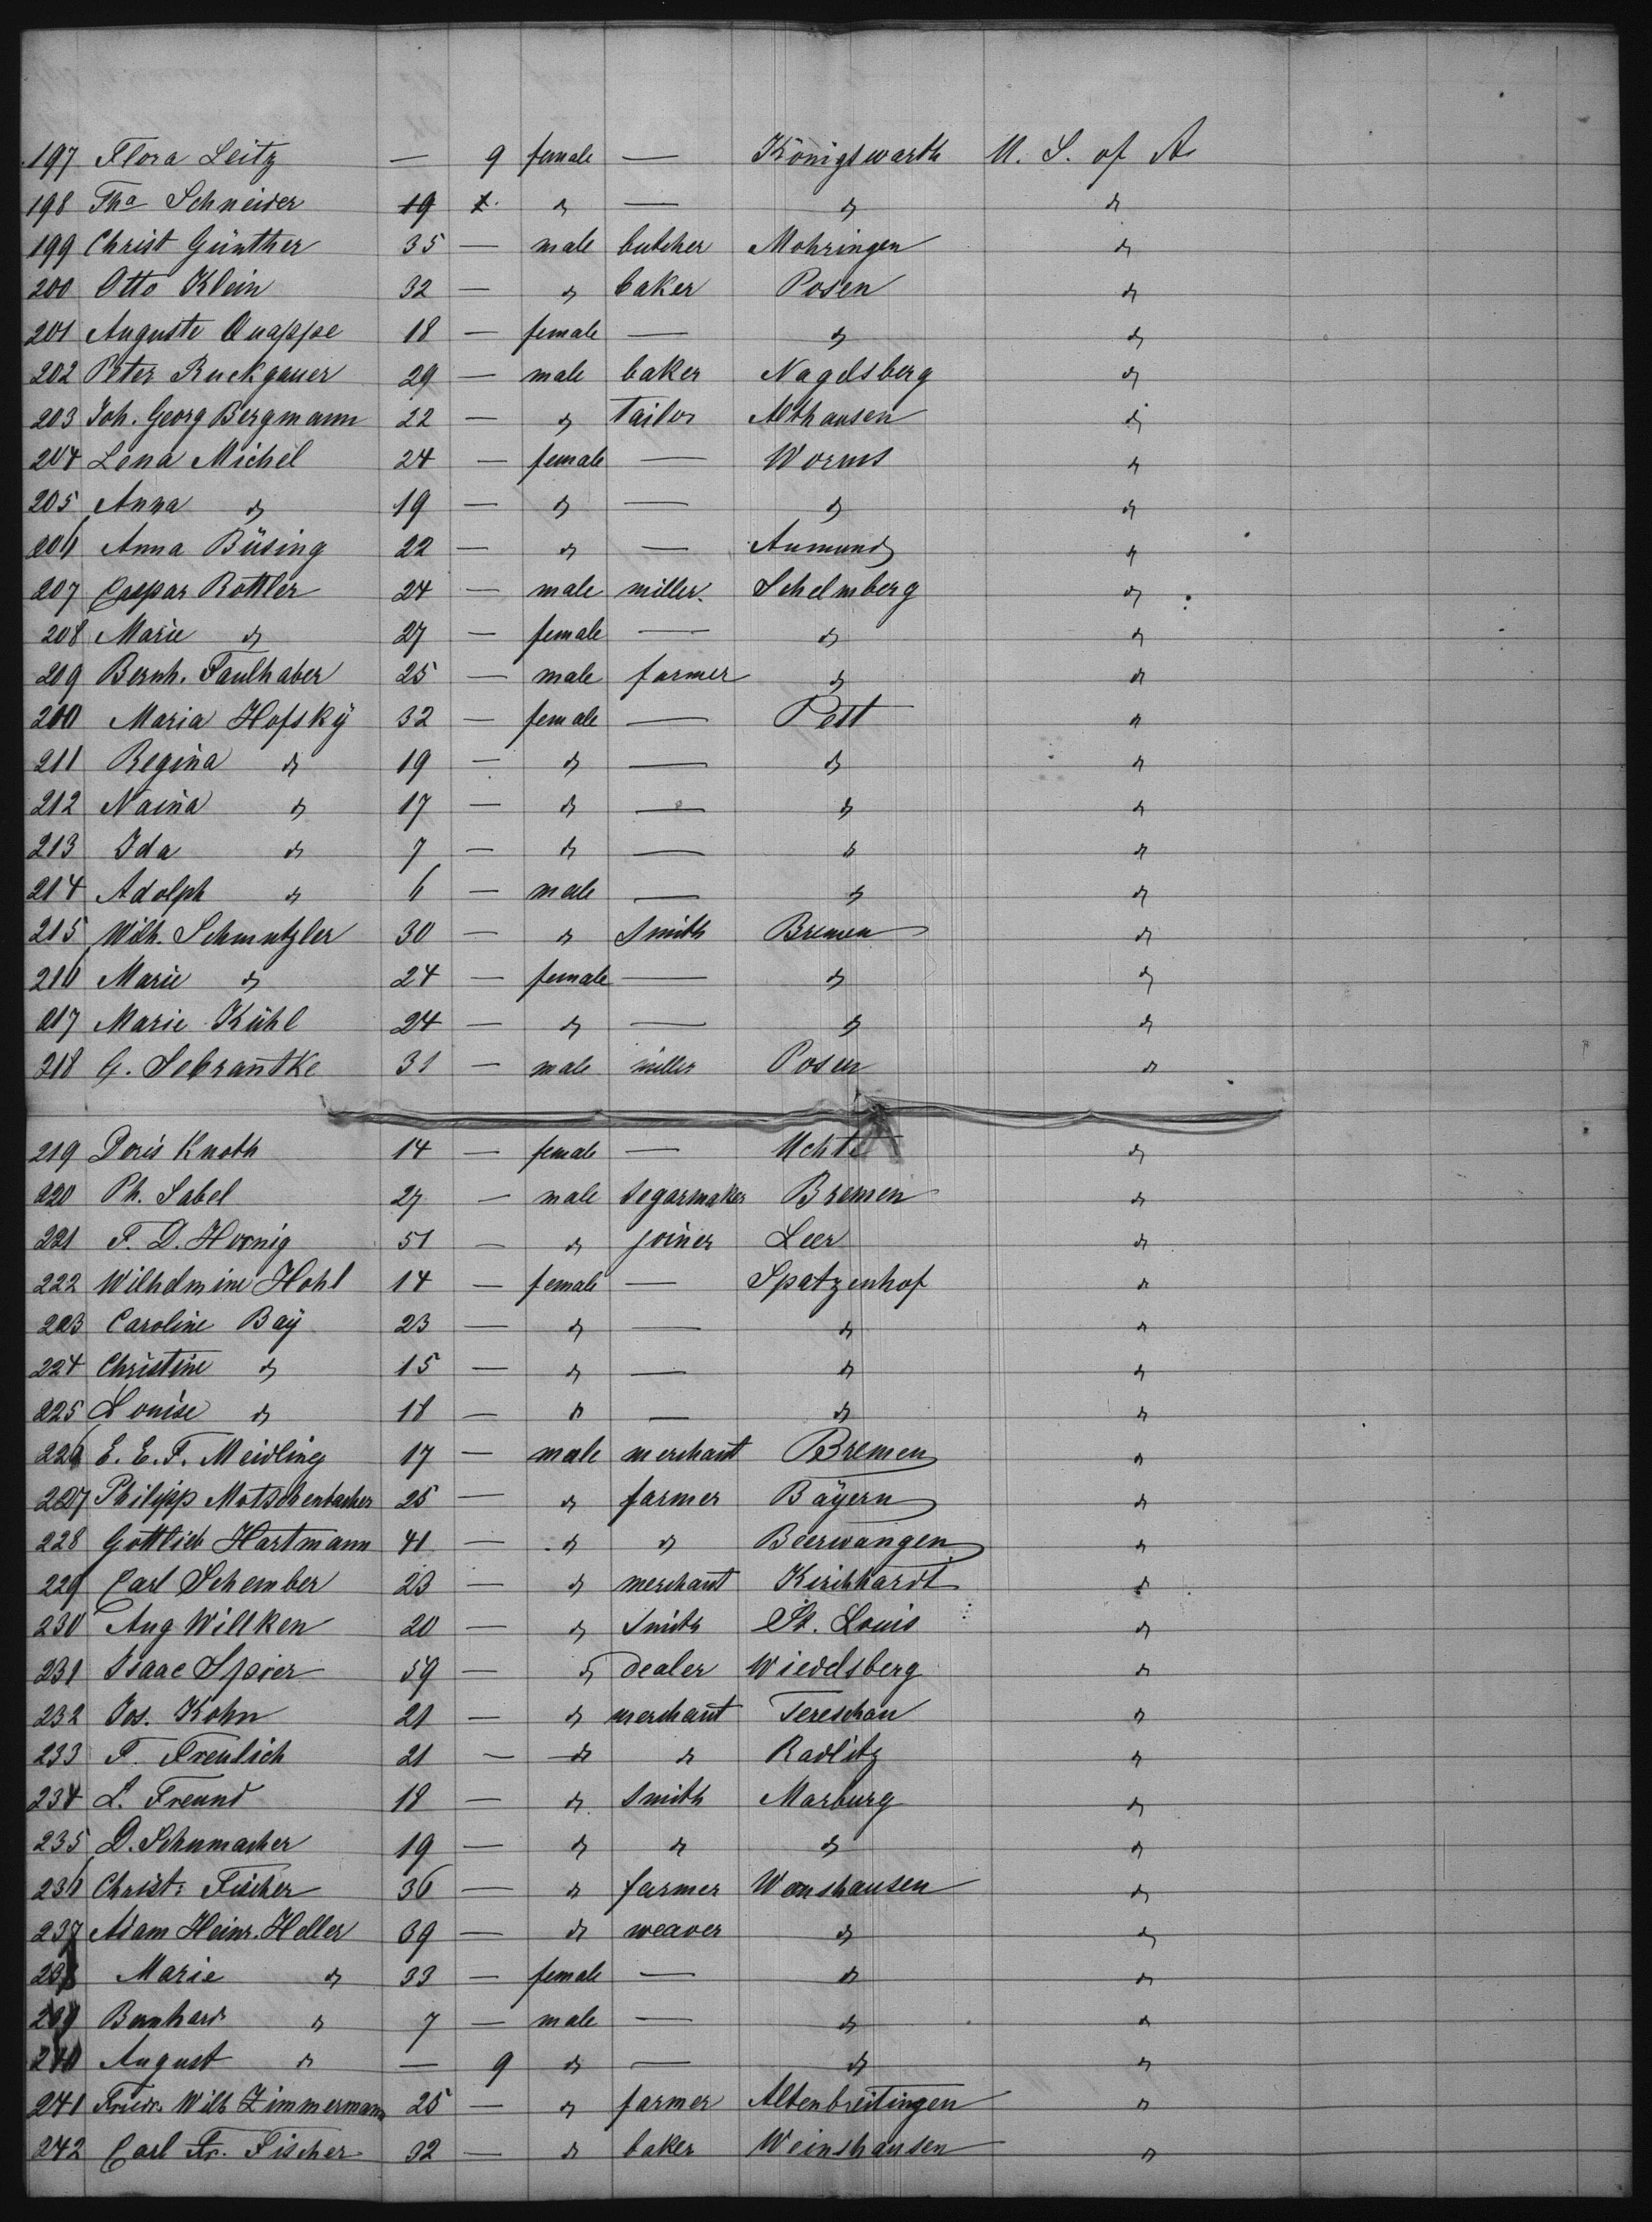 197 Flora Leitz — 9 female — Königswarth U. S. of A.
198 Tha Schneider 19 " — " "
199 Christ Günther 35 — male butcher Mohringen "
200 Otto Klein 32 — " baker Posen "
201 Auguste Quappe 18 — female — " "
202 Peter Ruckgauer 29 — male baker Nagelsberg "
203 Joh. Georg Bergmann 22 — " Tailor Althausen "
204 Lena Michel 24 — female — Worms "
205 Anna " 19 — " — " "
206 Anna Büsing 22 — " — Aumund "
207 Caspar Rottler 24 — male miller Schelmberg "
208 Marie " 27 — female — " "
209 Bernh. Faulhaber 25 — male farmer " "
210 Maria Hofsky 32 — female — Pest "
211 Regina " 19 — " — " "
212 Naina " 17 — " — " "
213 Ida " 7 — " — " "
214 Adolph " 6 — male — " "
215 Wilh. Schmutzler 30 — " Smith Bremen "
216 Marie " 24 — female — " "
217 Marie Kühl 24 — " — " "
218 G. Sebrantke 31 — male miller Posen "
219 Doris Knoth 14 — female — Uchte "
220 Ph. Sabel 27 — male Segarmaker Bremen "
221 F. D. Hornig 51 — " joiner Leer "
222 Wilhelmine Hohl 14 — female — Spatzenhof "
223 Caroline Baÿ 23 — " — " "
224 Christine " 15 — " — " "
225 Louise " 18 — " — " "
226 E. E. F. Meidling 17 — male merchant Bremen "
227 Philipp Motschenbacher 25 — " farmer Bayern "
228 Gottlieb Hartmann 41 — " " Beerwangen "
229 Carl Schember 23 — " merchant Kirchhardt "
230 Aug Willken 20 — " Smith St. Louis "
231 Isaac Spier 59 — " dealer Wiedelsberg "
232 Jos. Kohn 21 — " merchant Tereschau "
233 F. Freulich 21 — " " Radlitz "
234 L. Freund 18 — " Smith Marburg "
235 D. Schumacher 19 — " " " "
236 Christ: Fischer 36 — " farmer Wenshausen "
237 Adam Heinr. Heller 39 — " weaver " "
238 Marie " 33 — female — " "
239 Bernhard " 7 — male — " "
240 August " — 9 " — " "
241 Friedr. Wilh Zimmermann 25 — " farmer Altenbreitingen "
242 Carl Fr. Fischer 32 — " baker Weinshausen "